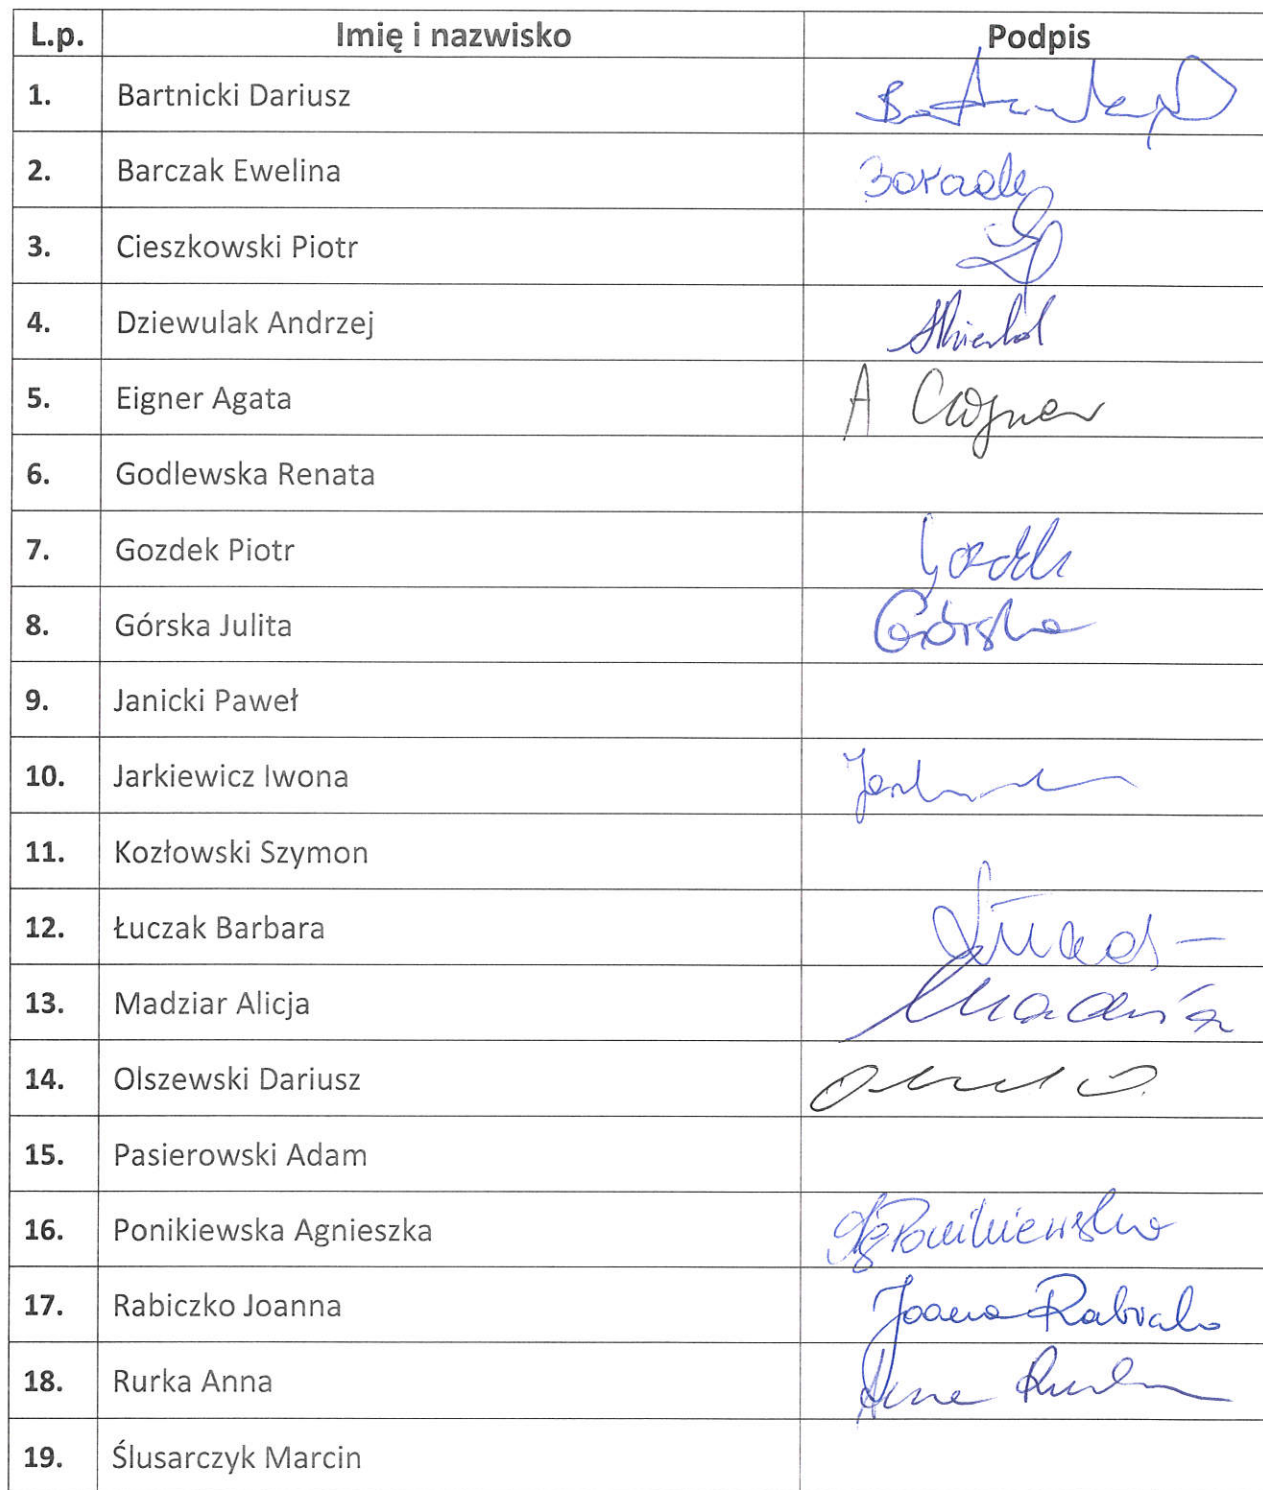 L.p. Imię i nazwisko Podpis
1. Bartnicki Dariusz
2. Barczak Ewelina
3. Cieszkowski Piotr
4. Dziewulak Andrzej
5. Eigner Agata A
6. Godlewska Renata
7. Gozdek Piotr
8. Górska Julita Górska
9. Janicki Paweł
10. Jarkiewicz Iwona
11. Kozłowski Szymon
12. Łuczak Barbara
13. Madziar Alicja
14. Olszewski Dariusz
15. Pasierowski Adam
16. Ponikiewska Agnieszka
17. Rabiczko Joanna
18. Rurka Anna
19. Ślusarczyk Marcin